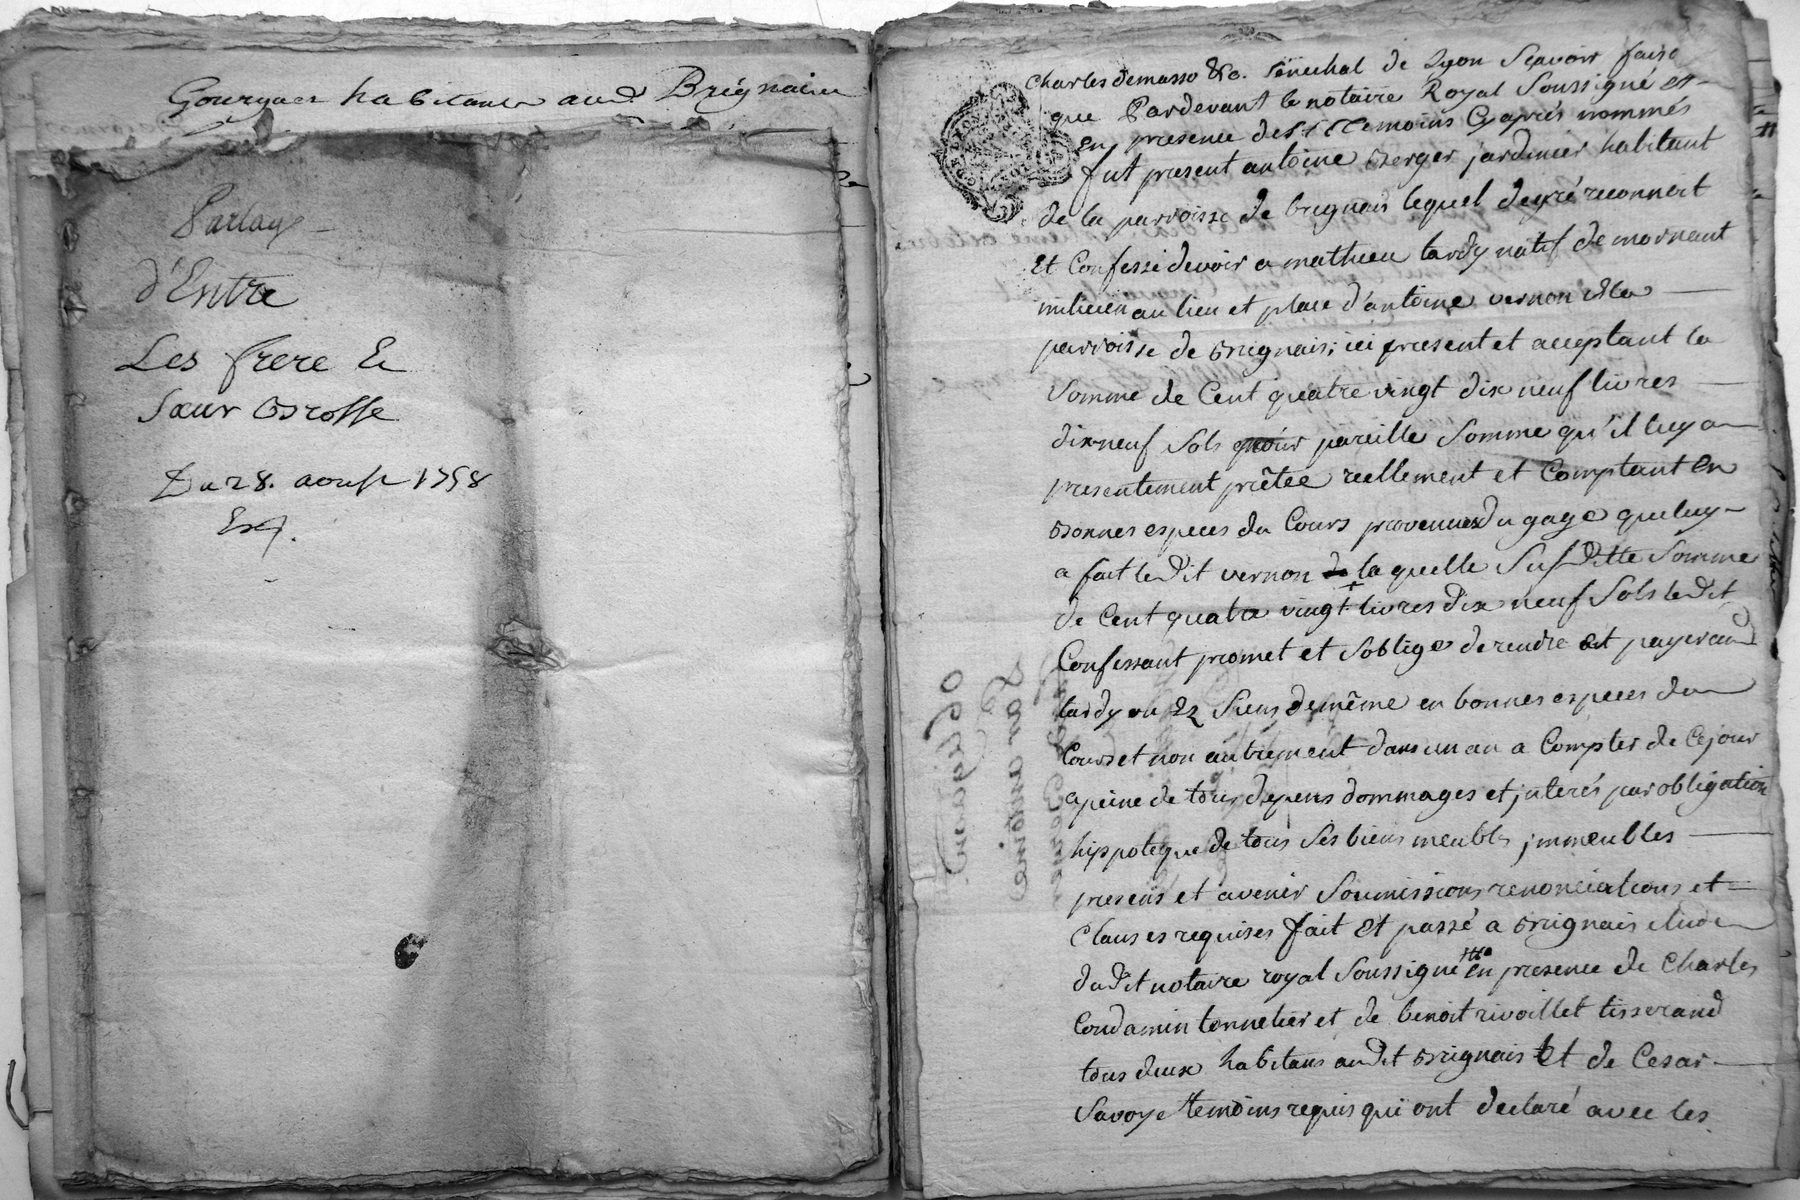 Gourguet habitants aud. Brignais
Partage
d'Entre
Les frere Et
Sœur Brosse
Du 28. aoust 1758
Exp.
Charles demasso &c. Sénechal de Lyon Sçavoir faise
que Pardevant le notaire Royal Soussigné et
En presence des temoins Cyaprés nommés
fut present antoine Berger jardinier habitant
de la parroisse de brignais lequel degré reconnoit
Et Confesse devoir a mathieu tardy natif de mornant
milicien au lieu et place d'antoine vernon de la
parroisse de Brignais; ici present et acceptant la
Somme de Cent quatre vingt dix neuf livres
dix neuf Sols pour pareille Somme qu'il luy a
presentement prêtée reellement et Comptant En
Bonnes especes du Cours provenües du gage que luy
a fait le dit vernon de la quelle Susditte Somme
de Cent quatre vingt livres dix neuf Sols le dit
Confessant promet et s'oblige de rendre et payer aud
tardy ou es Siens de même en bonnes especes du
Cours et non autrement dans un an a Compter de Cejour
a peine de tous depens dommages et jnterés par obligation
hippoteque de tous Ses biens meubles jmmeubles
presens et avenir Soumissions renonciations et
Clauses requises fait Et passé a Brignais etude
dudit notaire royal Soussigné en presence de Charles
Condamin tonnelier et de benoit rivoillet tisserand
tous deux habitans audit Brignais Et de Cesar
Savoye temoins requis qui ont declaré avec les